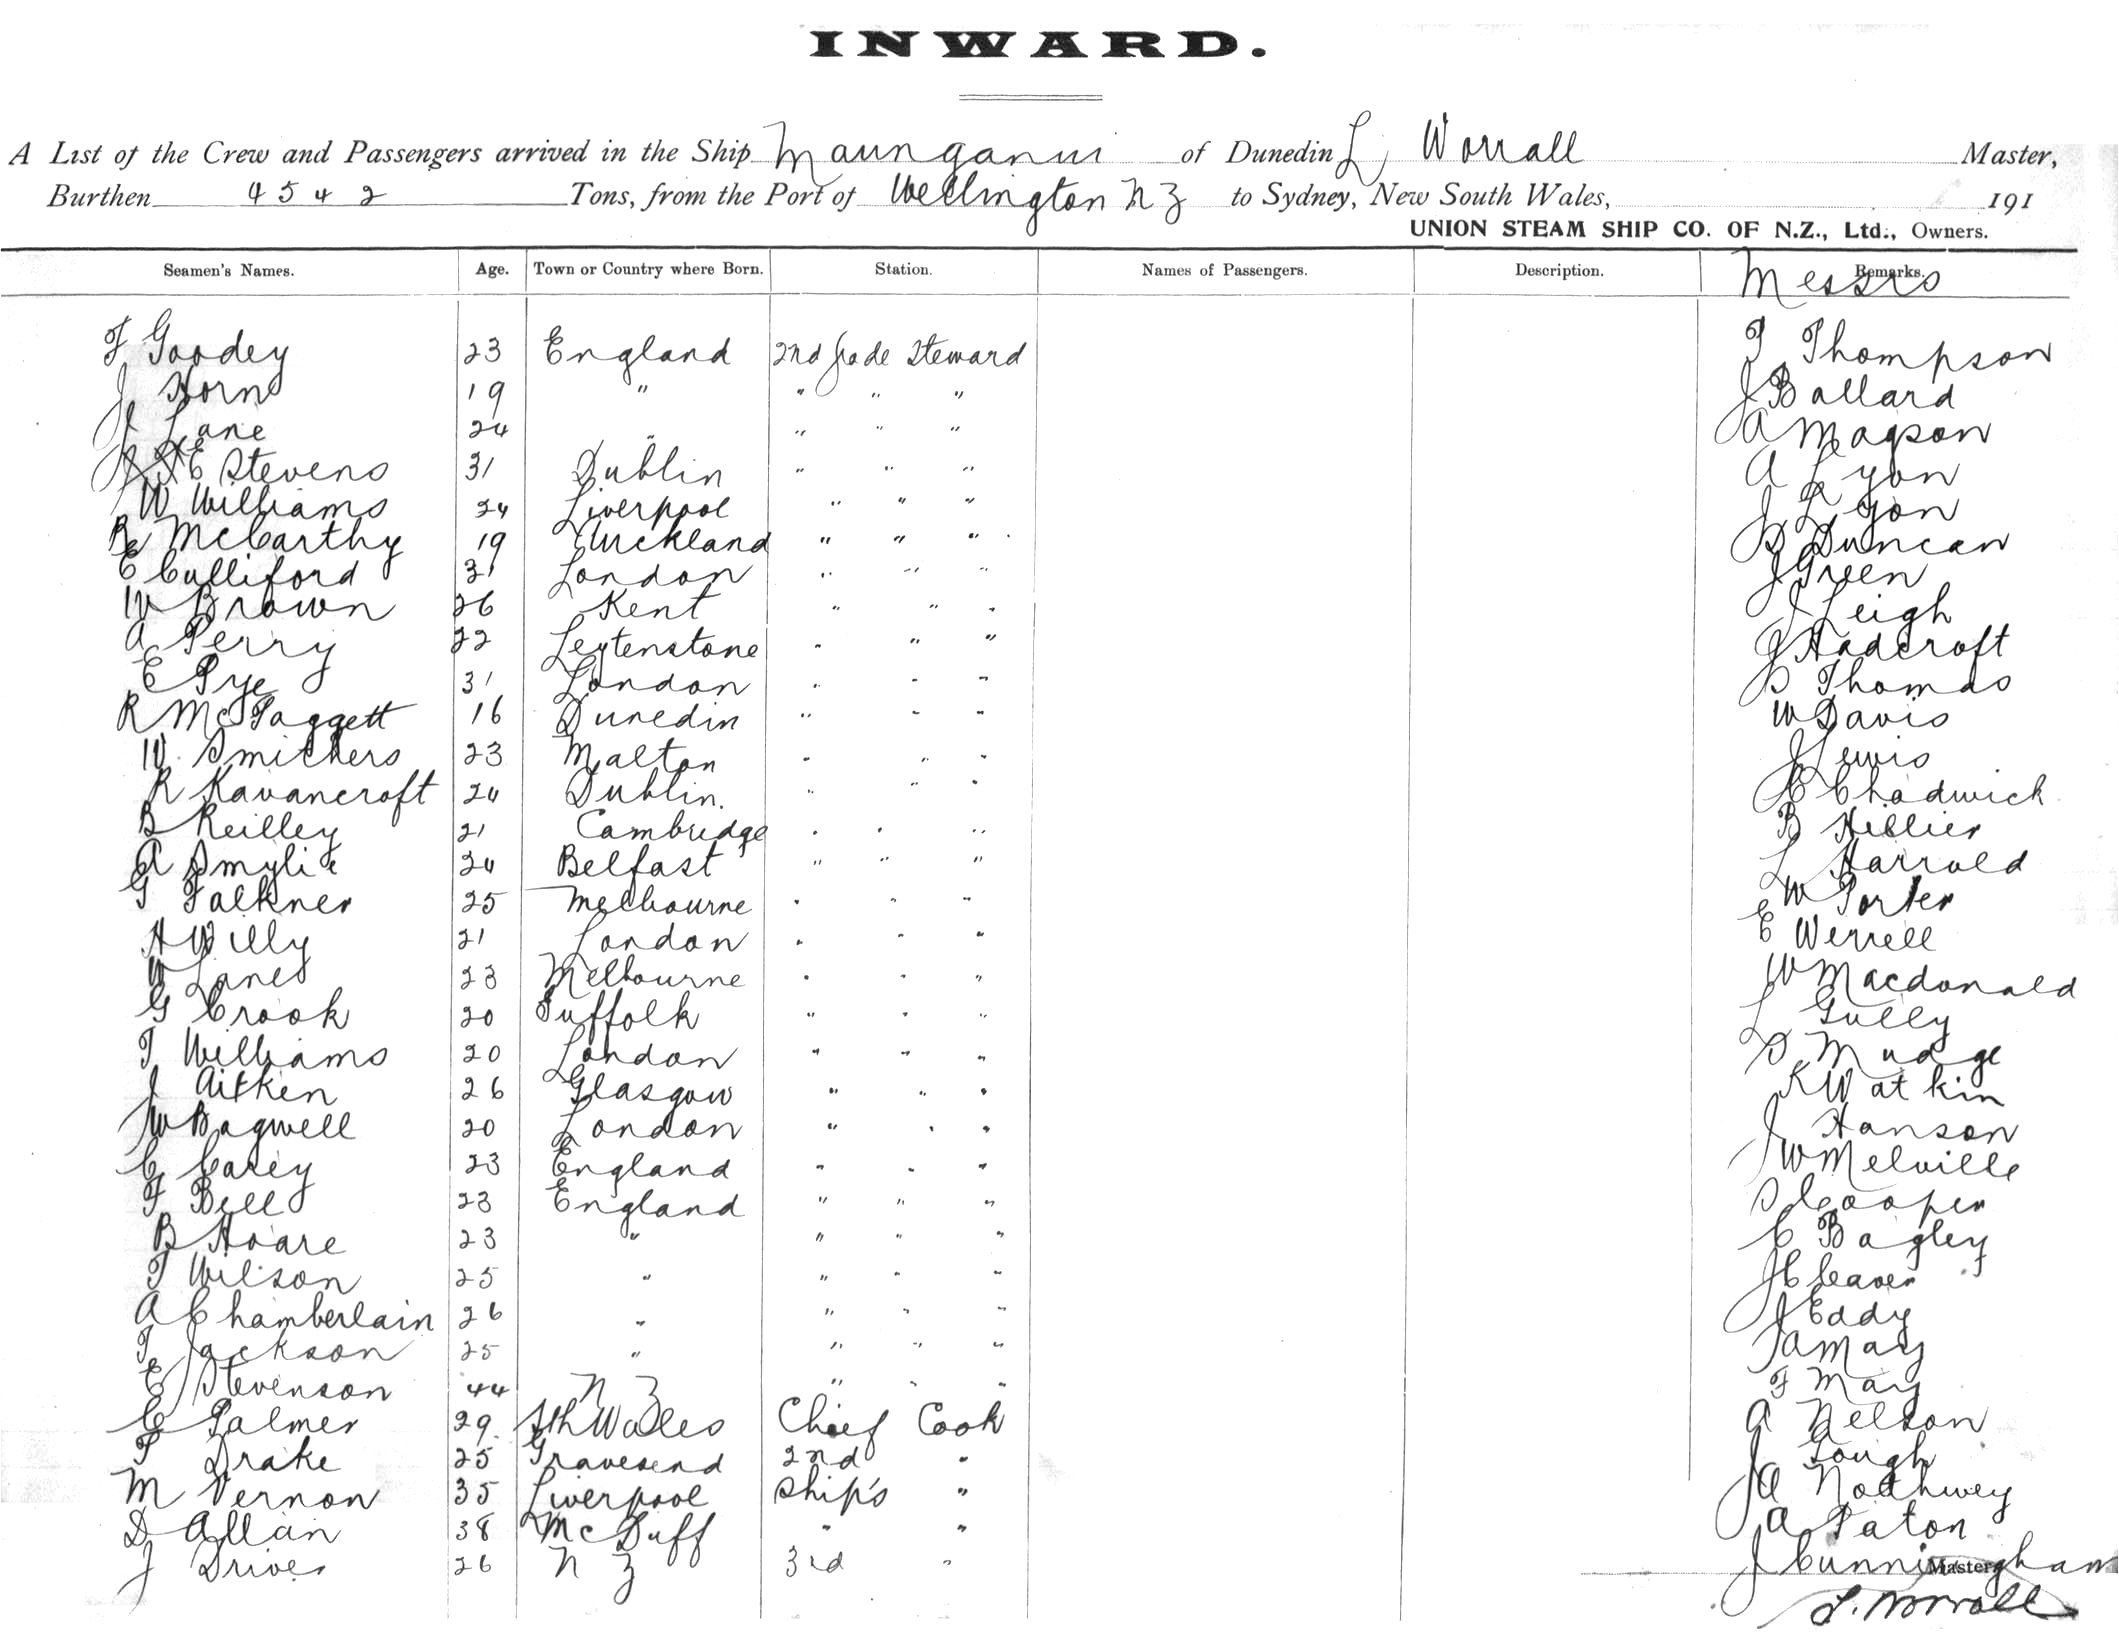 INWARD.
A List of the Crew and Passengers arrived in the Ship Maunganui of Dunedin L Worrall Master,
Burthen 4542 Tons, from the Port of Wellington NZ to Sydney, New South Wales, 191
UNION STEAM SHIP CO. OF N.Z., Ltd., Owners.
Seamen's Names. Age. Town or Country where Born. Station. Names of Passengers. Description. Remarks.
Messrs
F Goodey 23 England 2nd grade Steward T Thompson
J Horne 19 " " " " J Ballard
J Lane 24 " " " " A Magson
E Stevens 31 Dublin " " " A Lyon
W Williams 24 Liverpool " " " J Lyon
R McCarthy 19 Auckland " " " D Duncan
E Culliford 31 London " " " J Green
W Brown 26 Kent " " " J Leigh
A Perry 22 Leytenstone " " " J Hadcroft
E Pye 31 London " " " D Thomas
R McTaggett 16 Dunedin " " " W Davis
W Smithers 23 Malton " " " J Lewis
R Kavancroft 24 Dublin. " " " C Chadwick
B Reilley 21 Cambridge " " " B Hillier
A Smylie 24 Belfast " " " L Harrold
G Falkner 25 Melbourne " " " W Porter
H Willy 21 London " " " E Werrell
W Lane 23 Melbourne " " " W Macdonald
G Crook 20 Suffolk " " " L Gully
T Williams 20 London " " " D Mudge
J Aitken 26 Glasgow " " " K Watkin
W Bagwell 20 London " " " J Hanson
C Carey 23 England " " " W Melville
F Bell 23 England " " " S Cooper
B Hoare 23 " " " " C Bagley
T Wilson 25 " " " " J Cleaver
A Chamberlain 26 " " " " J Eddy
T Jackson 25 " " " " A May
E Stevenson 44 NZ " " " F May
C Palmer 29 Sth Wales Chief Cook A Nelson
P Drake 25 Gravesend 2nd " J Gough
M Vernon 35 Liverpool Ship's " A Nothwey
D Allan 38 McDuff " " A Paton
J Driver 26 NZ 3rd " J Cunningham
Master
L. Worrall